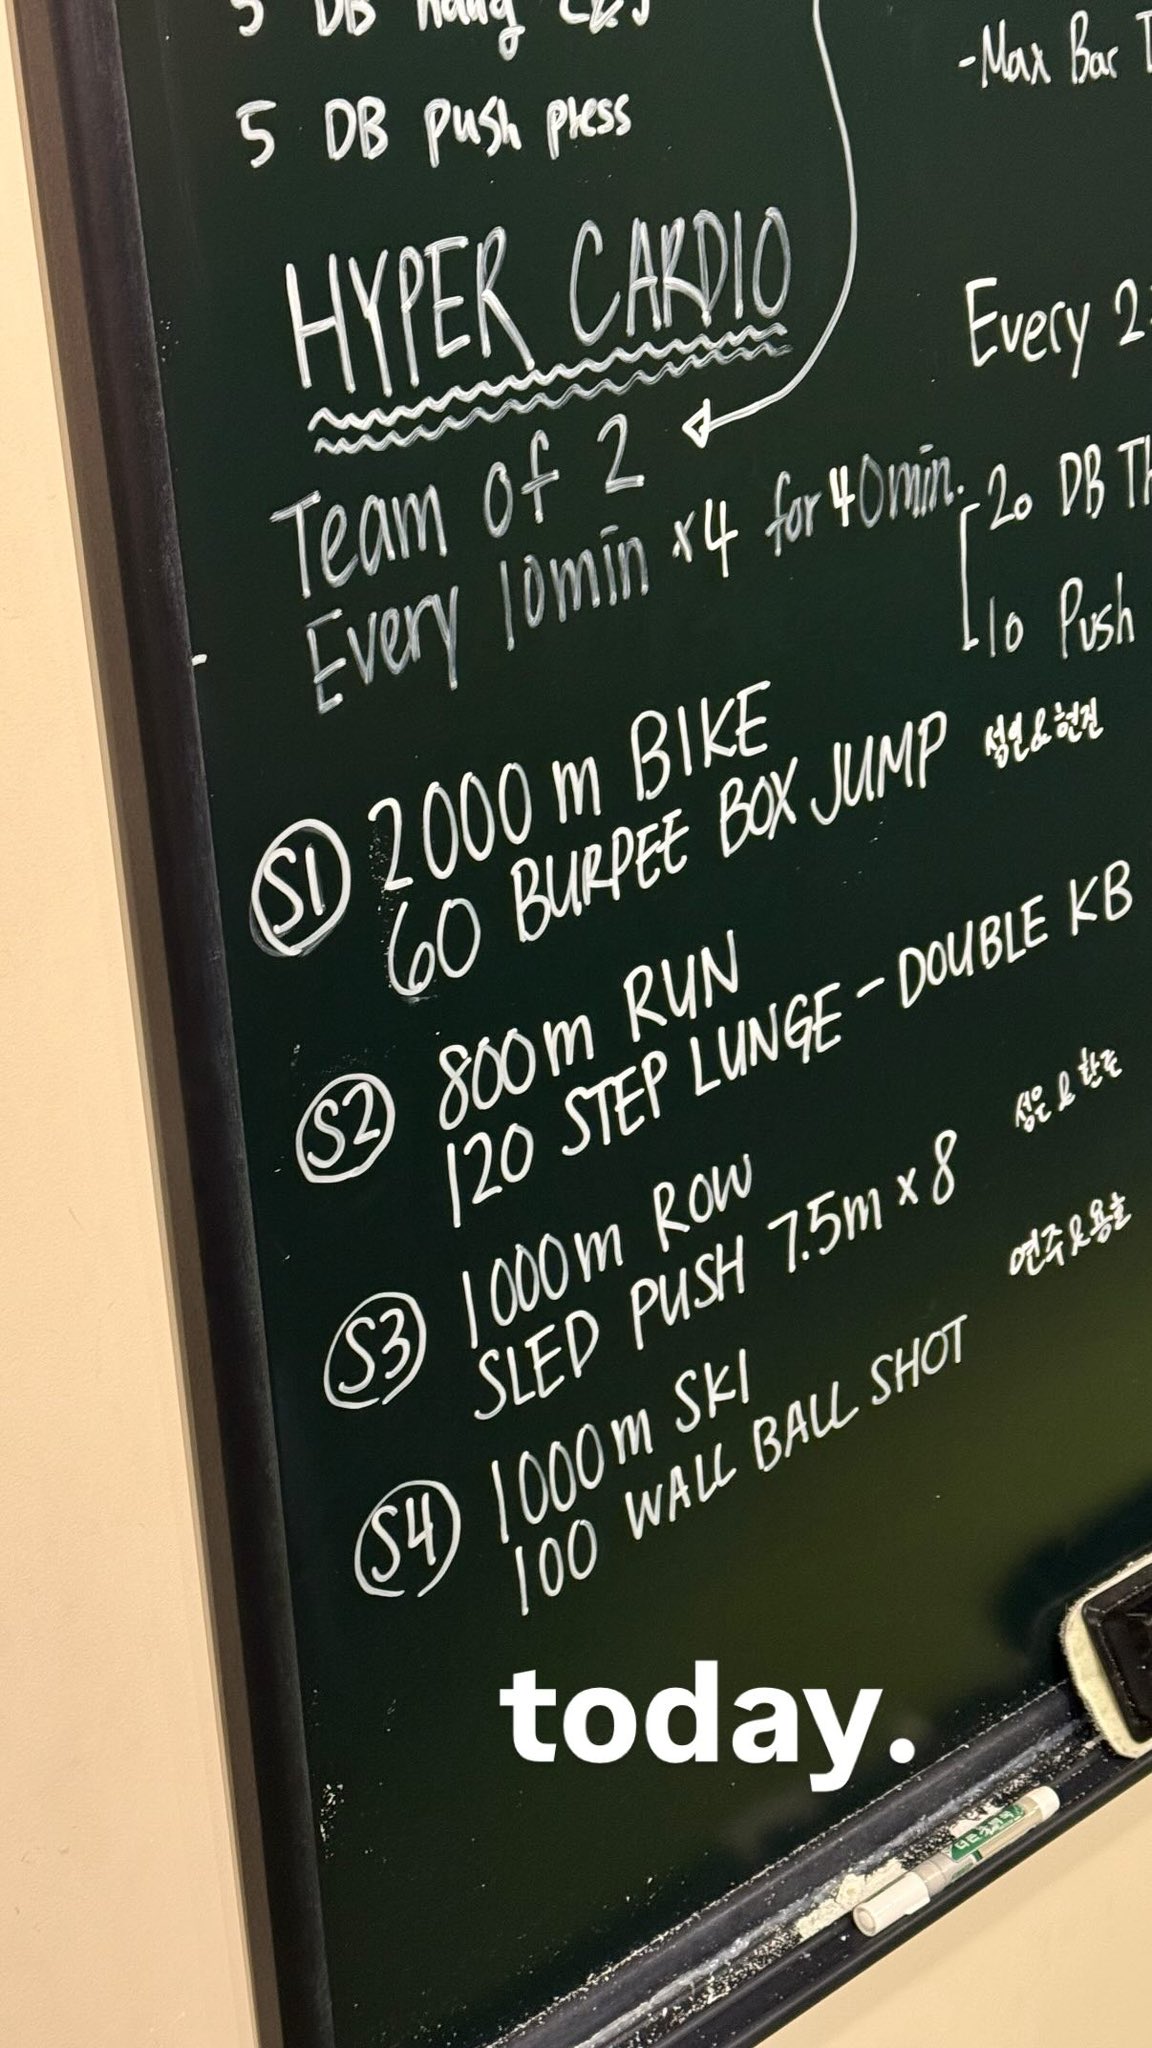 5 DB push press
-Max Bar
HYPER CARDIO
Every 2:
Team of 2
Every 10min x4 for 40min.
20 DB
10 Push
S1 2000m BIKE
60 BURPEE BOX JUMP 성연&현진
S2 800m RUN
120 STEP LUNGE - DOUBLE KB
성은&한준
S3 1000m ROW
SLED PUSH 7.5m x 8
연주&용호
S4 1000m SKI
100 WALL BALL SHOT
today.